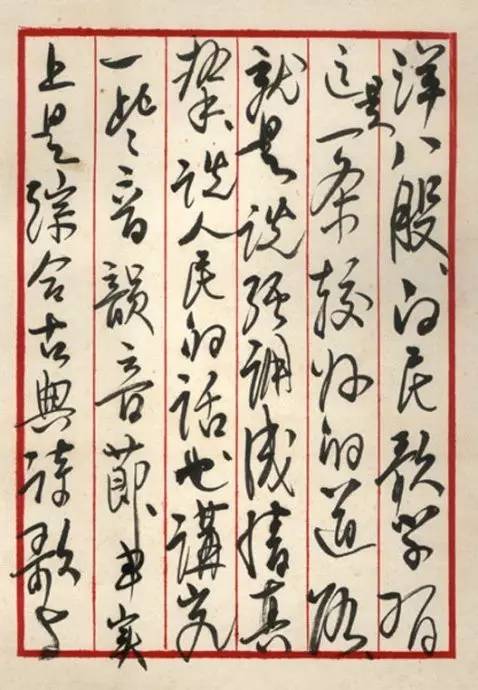 洋八股、向民歌学习
这是一条较好的道路
就是说强调感情真
挚、说人民的话也講究
一些音韻音節、事实
上是综合古典诗歌与